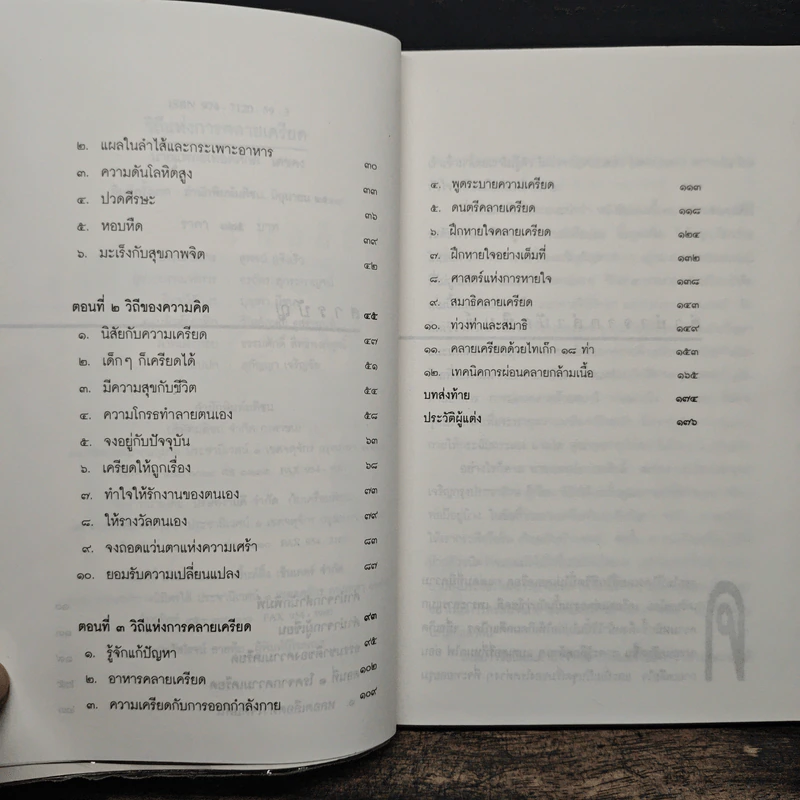 ๒. แผลในลำไส้และกระเพาะอาหาร ๓๐
๓. ความดันโลหิตสูง ๓๓
๔. ปวดศีรษะ ๓๖
๕. หอบหืด ๓๙
๖. มะเร็งกับสุขภาพจิต ๔๒
ตอนที่ ๒ วิถีของความคิด ๔๕
๑. นิสัยกับความเครียด ๔๗
๒. เด็กๆ ก็เครียดได้ ๕๑
๓. มีความสุขกับชีวิต ๕๔
๔. ความโกรธทำลายตนเอง ๕๘
๕. จงอยู่กับปัจจุบัน ๖๓
๖. เครียดให้ถูกเรื่อง ๖๘
๗. ทำใจให้รักงานของตนเอง ๗๓
๘. ให้รางวัลตนเอง ๗๙
๙. จงถอดแว่นตาแห่งความเศร้า ๘๓
๑๐. ยอมรับความเปลี่ยนแปลง ๘๗
ตอนที่ ๓ วิถีแห่งการคลายเครียด ๙๓
๑. รู้จักแก้ปัญหา ๙๕
๒. อาหารคลายเครียด ๑๐๒
๓. ความเครียดกับการออกกำลังกาย ๑๐๙
๔. พูดระบายความเครียด ๑๑๓
๕. ดนตรีคลายเครียด ๑๑๘
๖. ฝึกหายใจคลายเครียด ๑๒๔
๗. ฝึกหายใจอย่างเต็มที่ ๑๓๒
๘. ศาสตร์แห่งการหายใจ ๑๓๘
๙. สมาธิคลายเครียด ๑๔๓
๑๐. ท่วงท่าและสมาธิ ๑๔๙
๑๑. คลายเครียดด้วยไทเก๊ก ๑๘ ท่า ๑๕๓
๑๒. เทคนิคการผ่อนคลายกล้ามเนื้อ ๑๖๕
บทส่งท้าย ๑๗๔
ประวัติผู้แต่ง ๑๗๖